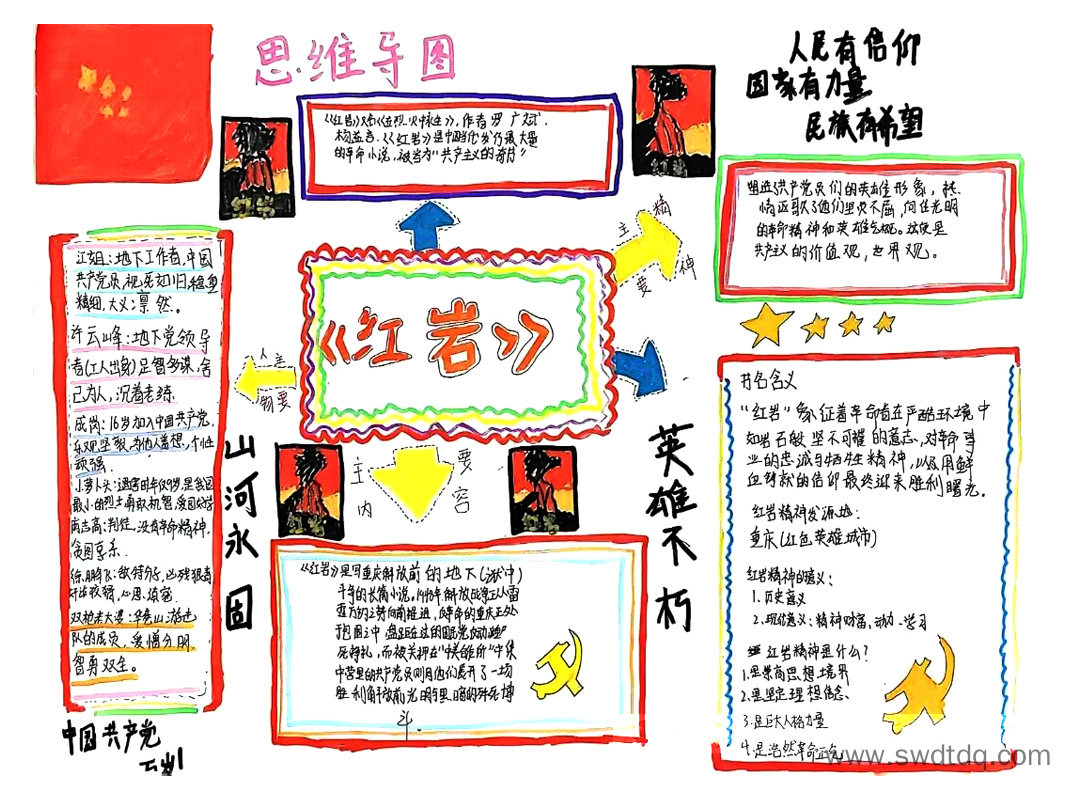 思维导图
人民有信仰
国家有力量
民族有希望
《红岩》又名《在烈火中永生》,作者罗广斌.
杨益言.《红岩》是中国当代发行最大量
的革命小说,被当为"共产主义的奇书"
红岩
红岩
塑造共产党员们的英雄形象,热
情讴歌了他们坚贞不屈,向往光明
的革命精神和英雄气概。这便是
共产主义的价值观,世界观。
主要
精神
《红岩》
人物
主要
江姐:地下工作者,中国
共产党员,视死如归,稳重
精细,大义凛然。
许云峰:地下党领导
者(工人出身)足智多谋,舍
己为人,沉着老练
成岗:16岁加入中国共产党,
乐观坚毅,为他人着想,个性
顽强.
最小的烈士,勇敢机智,爱国好学
甫志高:判徒,没有革命精神,
贪图享乐.
徐鹏飞:敌特分子,凶残狠毒
双枪老太婆:华蓥山游击
队的成员,爱憎分明
智勇双全。
山河永固
主要
内容
红岩
红岩
英雄不朽
《红岩》是写重庆解放前的地下(狱中)
斗争的长篇小说,1948年解放战争正从雷
死挣扎,而被关押在"中美合作所"中集
中营里的共产党员则用他们展开了一场
胜利解放前光明与黑暗的殊死搏
斗.
书名含义
"红岩"象征着革命者在严酷环境中
如岩石般坚不可摧的意志,对革命事
业的忠诚与牺牲精神,以及用鲜
血铸就的信仰最终迎来胜利曙光.
红岩精神发源地:
重庆(红色英雄城市)
红岩精神的意义:
1.历史意义
2.现代意义:精神财富、动力、学习
红岩精神是什么?
1.是崇高思想境界
2.是坚定理想信念、
3.是巨大人格力量
4.是浩然革命正气
中国共产党
万岁!
www.swdtdq.com